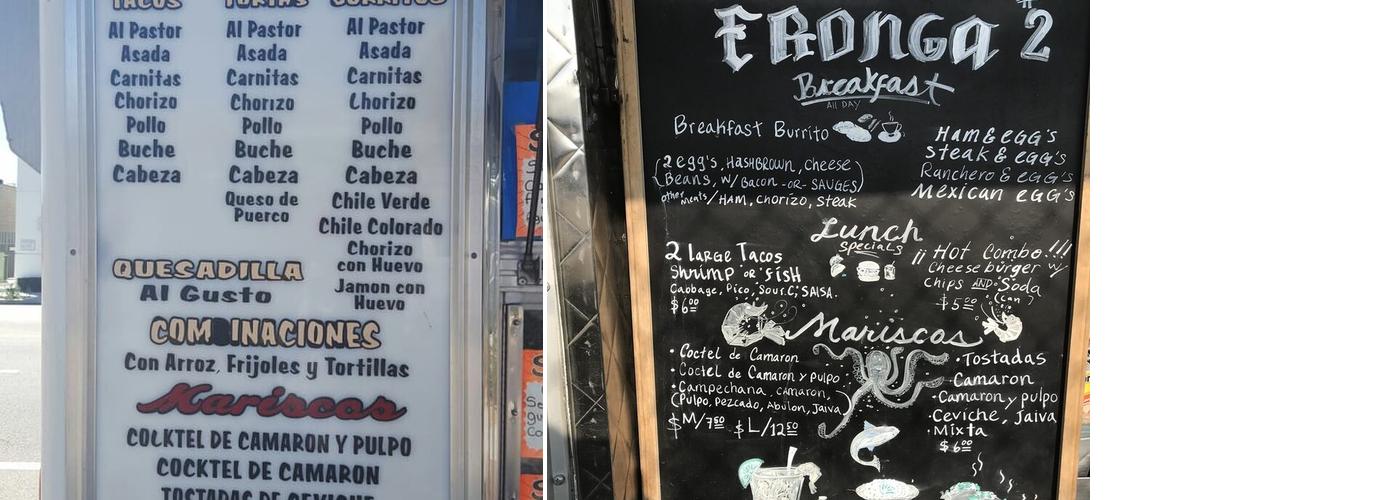 TACOS
TORTAS
BURRITOS
Al Pastor
Asada
Carnitas
Chorizo
Pollo
Buche
Cabeza
Al Pastor
Asada
Carnitas
Chorizo
Pollo
Buche
Cabeza
Queso de
Puerco
Al Pastor
Asada
Carnitas
Chorizo
Pollo
Buche
Cabeza
Chile Verde
Chile Colorado
Chorizo
con Huevo
Jamon con
Huevo
QUESADILLA
Al Gusto
COMBINACIONES
Con Arroz, Frijoles y Tortillas
Mariscos
COLKTEL DE CAMARON Y PULPO
COCKTEL DE CAMARON
TOSTADAS DE CEVICHE
ERONGA #2
Breakfast
ALL DAY
Breakfast Burrito
(2 egg's, HASHBROWN, Cheese
Beans, w/ Bacon -OR- SAUGES)
other meats/ HAM, chorizo, steak
Ham & eGG's
Steak & eGG's
Ranchero & eGG's
Mexican eGG's
Lunch
specials
2 Large Tacos
Shrimp OR fish
Cabbage, Pico, Sour.C, SALSA.
$6.00
¡¡ Hot Combo!!!
Cheeseburger w/
chips AND Soda
(can)
$5.00
Mariscos
• Coctel de Camaron
• Coctel de Camaron y pulpo
• Campechana, camaron,
(Pulpo, Pezcado, Abulon, Jaiva)
$M/7.50 $L/12.50
• Tostadas
Camaron
• Camaron y pulpo
• Ceviche, Jaiva
• Mixta
$6.00